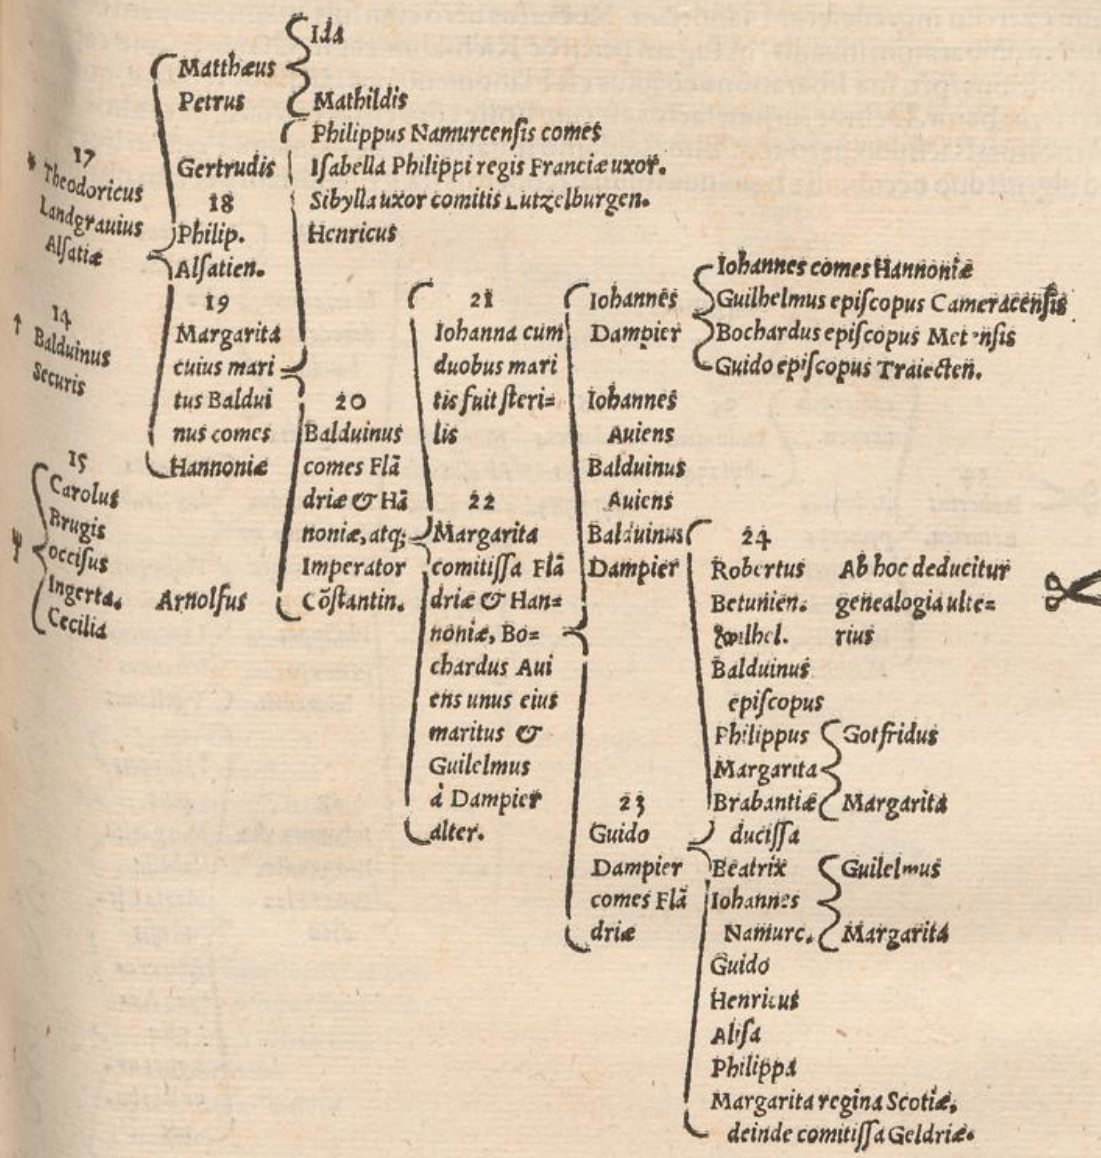 17
Theodoricus
Landgrauius
Alſatiæ
14
Balduinus
Securis
15
Carolus
Brugis
occiſus
Ingerta.
Cecilia
Arnolfus
Matthæus
Petrus
Gertrudis
18
Philip.
Alſatien.
19
Margarita
cuius mari
tus Baldui
nus comes
Hannoniæ
Ida
Mathildis
Philippus Namurcenſis comes
Iſabella Philippi regis Franciæ uxor.
Sibylla uxor comitis Lutzelburgen.
Henricus
20
Balduinus
comes Flã
driæ & Hã
noniæ, atq;
Imperator
Cõſtantin.
21
Iohanna cum
duobus mari
tis fuit ſteri=
lis
22
Margarita
comitiſſa Flã
driæ & Han=
noniæ, Bo=
chardus Aui
ens unus eius
maritus &
Guilelmus
à Dampier
alter.
Iohannes
Dampier
Iohannes
Auiens
Balduinus
Auiens
Balduinus
Dampier
23
Guido
Dampier
comes Flã
driæ
Iohannes comes Hannoniæ
Guilhelmus epiſcopus Cameracenſis
Bochardus epiſcopus Metenſis
Guido epiſcopus Traiecten.
24
Robertus
Betunien.
Guilhel.
Balduinus
epiſcopus
Philippus
Margarita
Brabantiæ
duciſſa
Beatrix
Iohannes
Namurc.
Guido
Henricus
Aliſa
Philippa
Margarita regina Scotiæ,
deinde comitiſſa Geldriæ.
Ab hoc deducitur
genealogia ulte=
rius
Gotfridus
Margarita
Guilelmus
Margarita